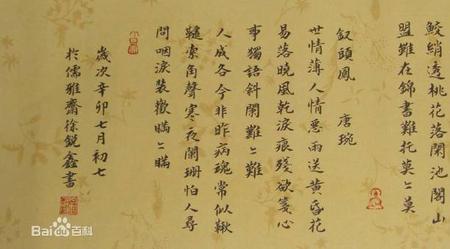 鮫綃透桃花落閑池閣山
盟難在錦書難托莫〻莫
釵頭鳳 唐琬
世情薄人情惡雨送黃昏花
易落曉風乾淚痕殘欲箋心
事獨語斜闌難〻難
人成各今非昨病魂常似鞦
韆索角聲寒夜闌珊怕人尋
問咽淚裝歡瞞〻瞞
歲次辛卯七月初七
於儒雅齋徐銳鑫書
Baidu百科